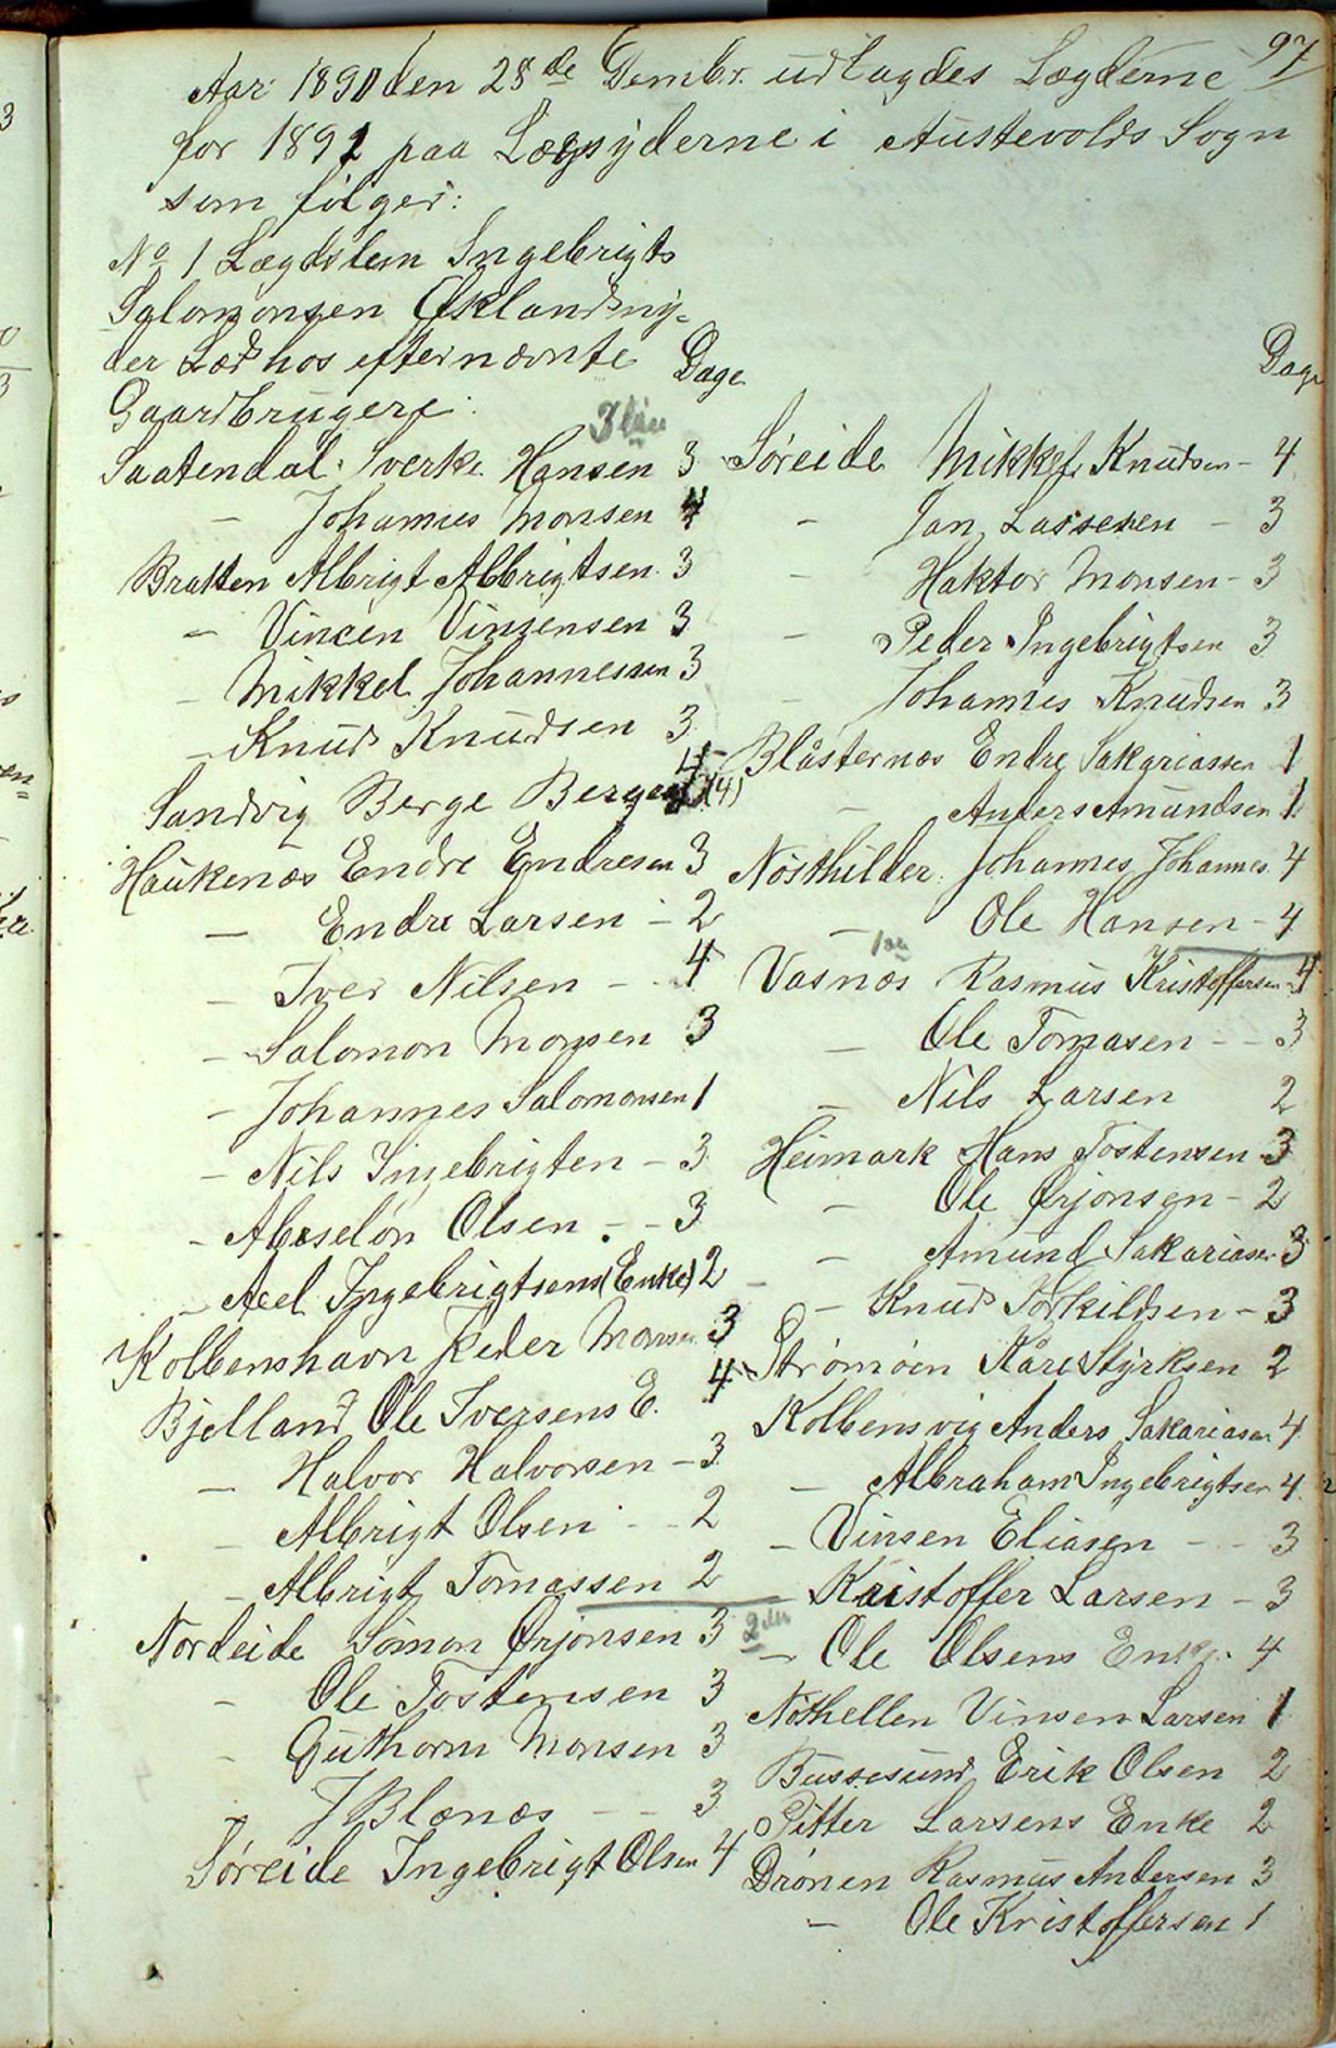 97
Aar 1890 den 28de Dembr. udlagdes Lægderne
for 1891 paa Lægsyderne i Austevolds Sogn
som følger:
No 1 Lægdslem Ingebrigt
Salomonsen Øklandsny-
der Læd hos efternævnte Dage
Gaardbrugere.
Saatendal Sverke Hansen 3
- Johannes Monsen 4
Bratten Albrigt Albrigtsen 3
- Vincen Vinsensen 3
- Mikkel Johannessen 3
- Knud Knudsen 3
Sandvig Berge Bergesen 4 (4)
Haukenæs Endre Endresen 3
- Endre Larsen - 2
- Iver Nilsen - 4
- Salomon Monsen 3
- Johannes Salomonsen 1
- Nils Ingebrigten - 3
- Abeselon Olsen - - 3
- Ael Ingebrigtsens (Enke) 2
Kolbenshavn Peder Monsen 3
Bjelland Ole Iversens E. 4
- Halvor Halvorsen - 3
- Albrigt Olsen - - 2
- Albrigt Tomassen 2
Nordeide Simon Ørjonsen 3
- Ole Tostensen 3
- Guthorm Monsen 3
J Blænæs - - 3
Søreide Ingebrigt Olsen 4
Dage
Søreide Mikkel Knudsen - 4
- Jan Lassesen - 3
- Haktor Monsen - 3
- Peder Ingebrigtsen 3
- Johannes Knudsen 3
Blåsternæs Endre Sakariassen 1
- Anders Amundsen 1
Nösthilder Johannes Johannes. 4
- Ole Hansen - 4
Vasnæs Rasmus Kristoffersen 4
- Ole Tomasen - - 3
- Nils Larsen 2
Heimark Hans Tostensen - 3
- Ole Ørjonsen - 2
- Amund Sakariasen 3
- Knud Torkildsen - 3
Strømøen Kåre Styrksen 2
Kolbensvig Anders Sakariasen 4
- Albraham Ingebrigtsen 4
- Vinsen Eliasen - - 3
- Kristoffer Larsen - 3
2den
- Ole Olsens Enke. 4
Nöthellen Vinsen Larsen 1
Bussesund Erik Olsen 2
Pitter Larsens Enke 2
Drönen Rasmus Andersen 3
- Ole Kristoffersen 1